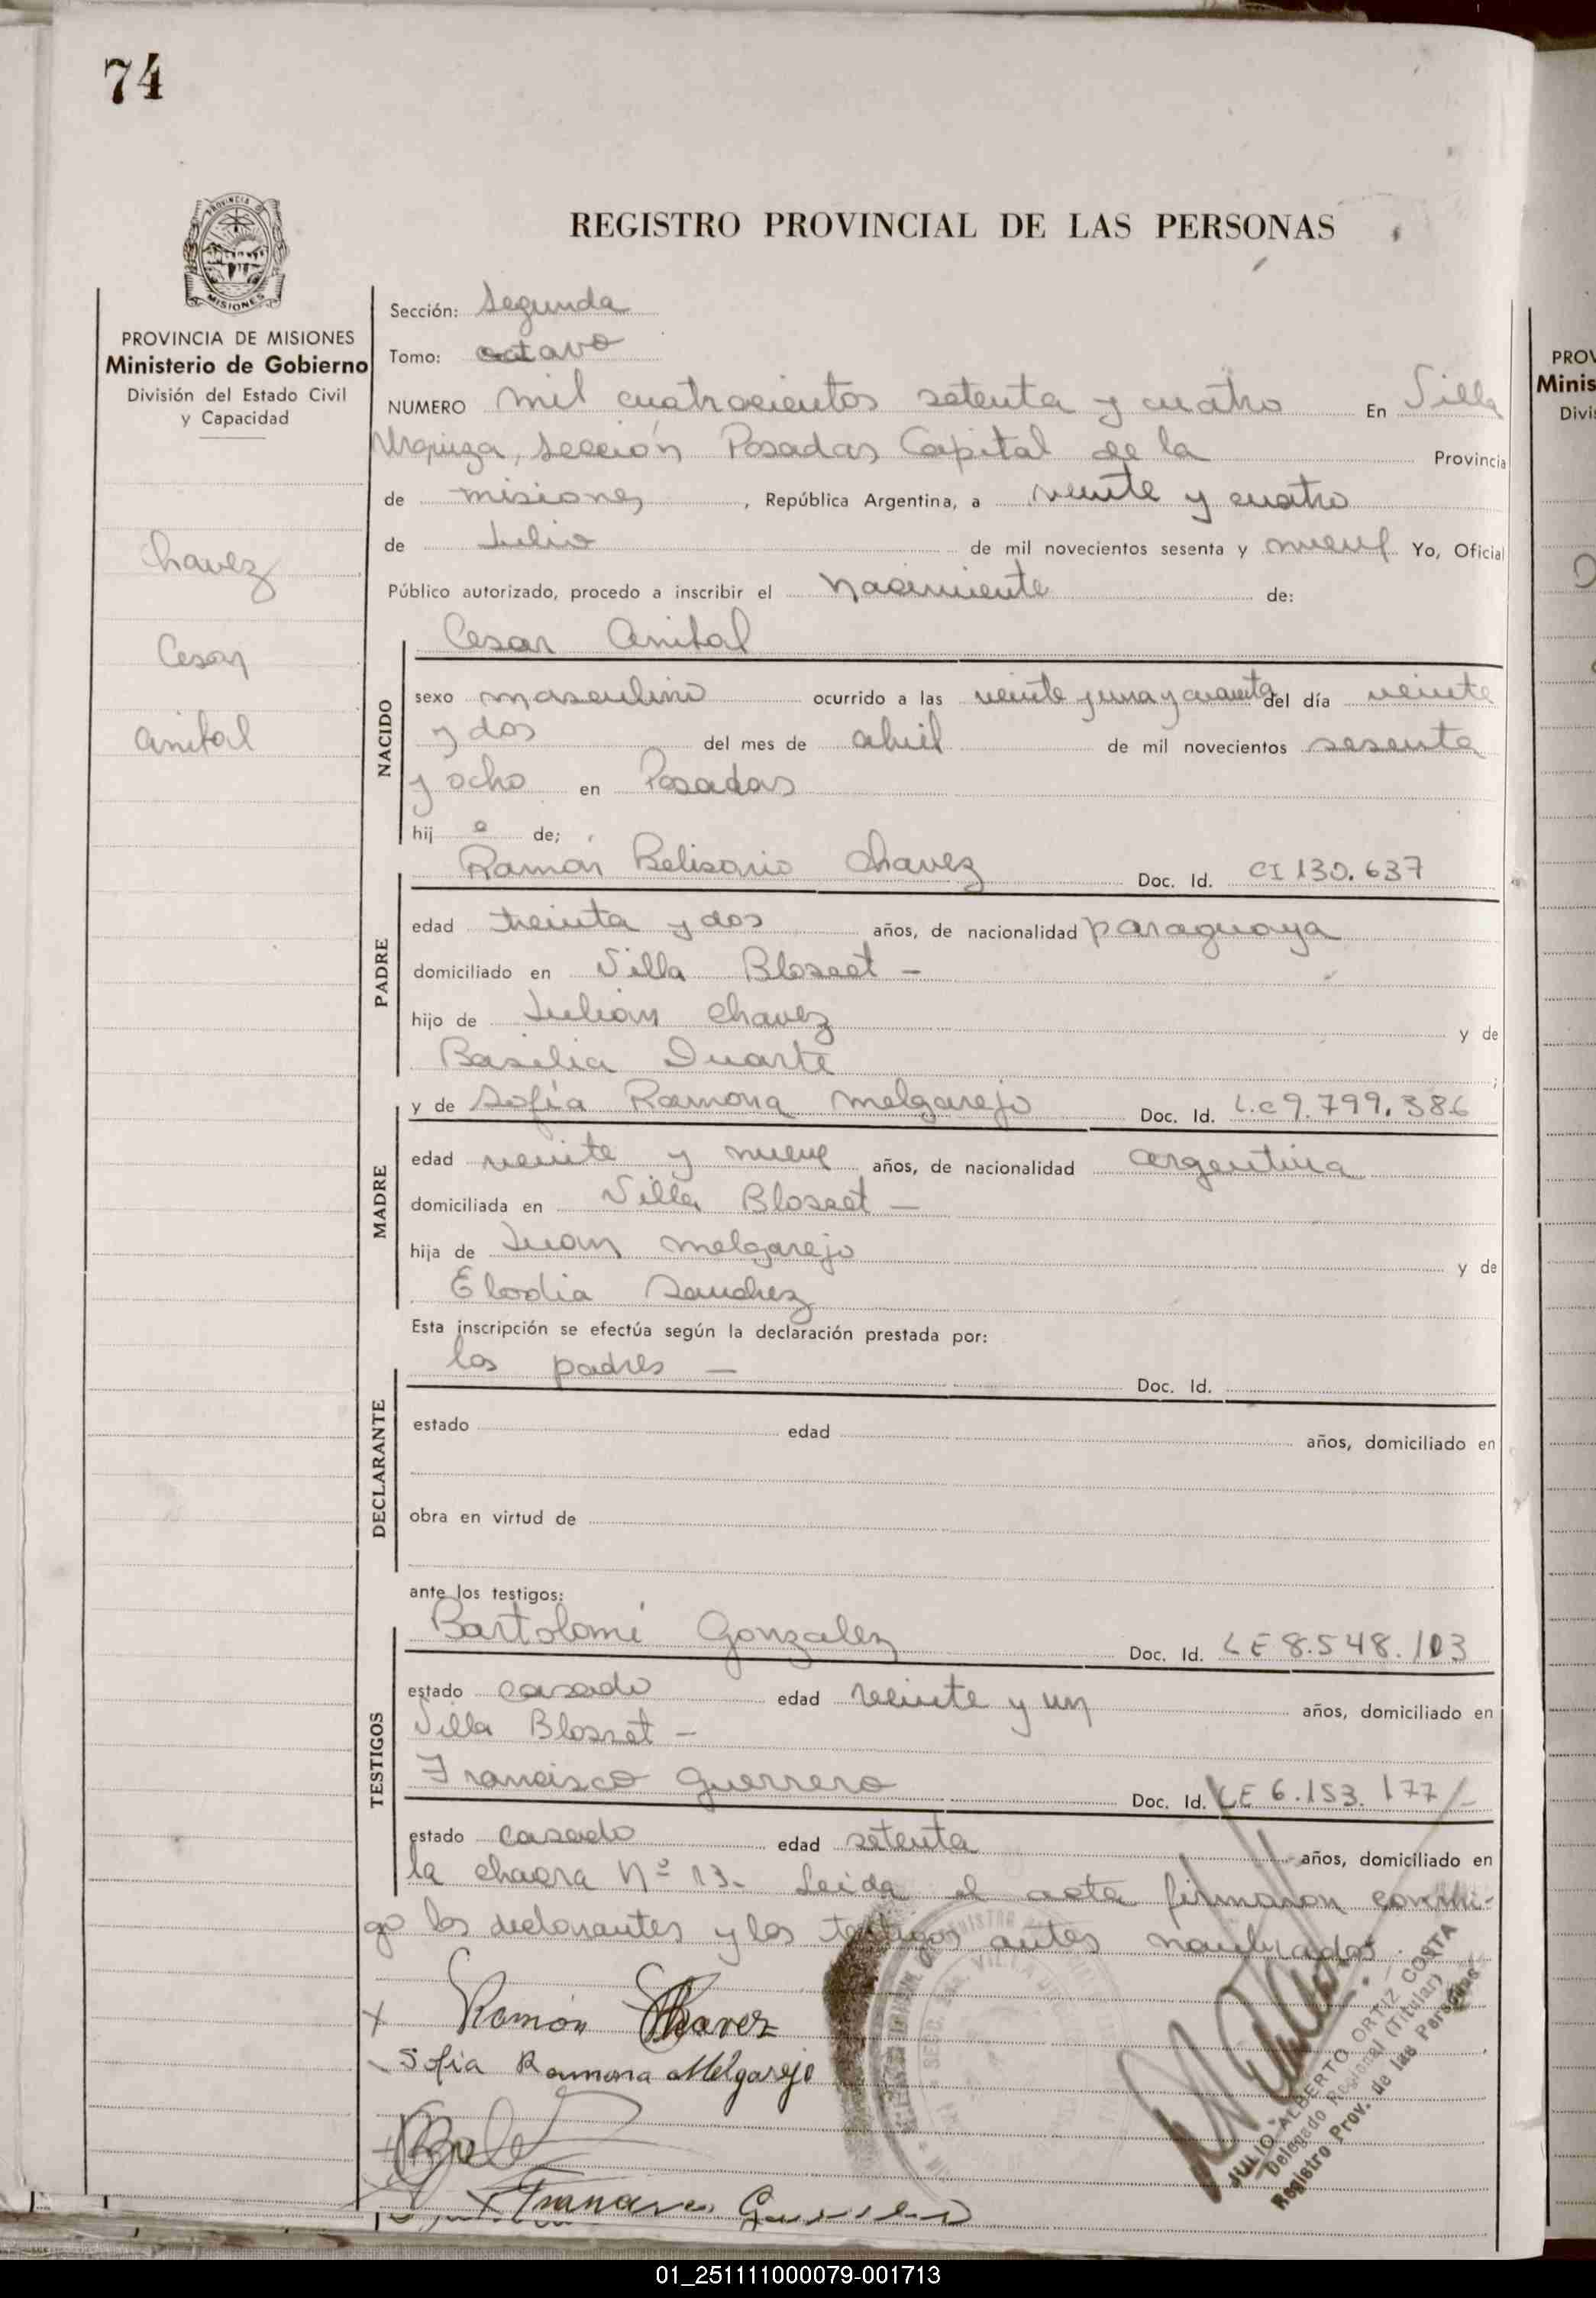 74
PROVINCIA
MISIONES
REGISTRO PROVINCIAL DE LAS PERSONAS
PROVINCIA DE MISIONES
Ministerio de Gobierno
División del Estado Civil
y Capacidad
Chavez
Cesar
Anibal
Sección: Segunda
Tomo: octavo
NUMERO mil cuatrocientos setenta y cuatro En Villa
Urquiza, sección Posadas Capital de la Provincia
de misiones, República Argentina, a veinte y cuatro
de Julio de mil novecientos sesenta y nueve Yo, Oficial
Público autorizado, procedo a inscribir el nacimiento de:
NACIDO
Cesar Anibal
sexo masculino ocurrido a las veinte y una y cuarenta del día veinte
y dos del mes de abril de mil novecientos sesenta
y ocho en Posadas
hij o de;
PADRE
Ramón Belisario Chavez Doc. Id. CI 130.637
edad treinta y dos años, de nacionalidad paraguaya
domiciliado en Villa Blosset –
hijo de Julián Chavez y de
Basilia Duarte ;
MADRE
y de Sofía Ramona Melgarejo Doc. Id. L.C 9.799.386
edad veinte y nueve años, de nacionalidad argentina
domiciliada en Villa Blosset –
hija de Juan Melgarejo y de
Elodia Sanchez
Esta inscripción se efectúa según la declaración prestada por:
DECLARANTE
los padres – Doc. Id.
estado edad años, domiciliado en
obra en virtud de
ante los testigos:
TESTIGOS
Bartolomé Gonzalez Doc. Id. LE 8.548.103
estado casado edad veinte y un años, domiciliado en
Villa Blosset –
Francisco Guerrero Doc. Id. LE 6.153.177/–
estado casado edad setenta años, domiciliado en
la chacra Nº 13. Leida el acta firmaron conmi-
go los declarantes y los testigos antes nombrados.
x Ramón Chavez
Sofia Ramona Melgarejo
x Francisco Guerrero
JULIO ALBERTO ORTIZ COSTA
Delegado Regional (Titular)
Registro Prov. de las Personas
PROV
Minis
Divi
01_251111000079-001713